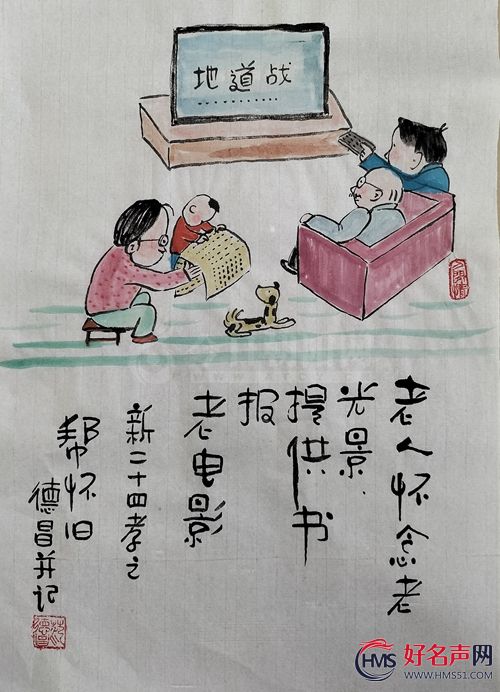 地道战
老人怀念老
光景、
提供书
报
老电影
新二十四孝之
帮怀旧
德昌并记
HMS 好名声网
WWW.HMS51.COM